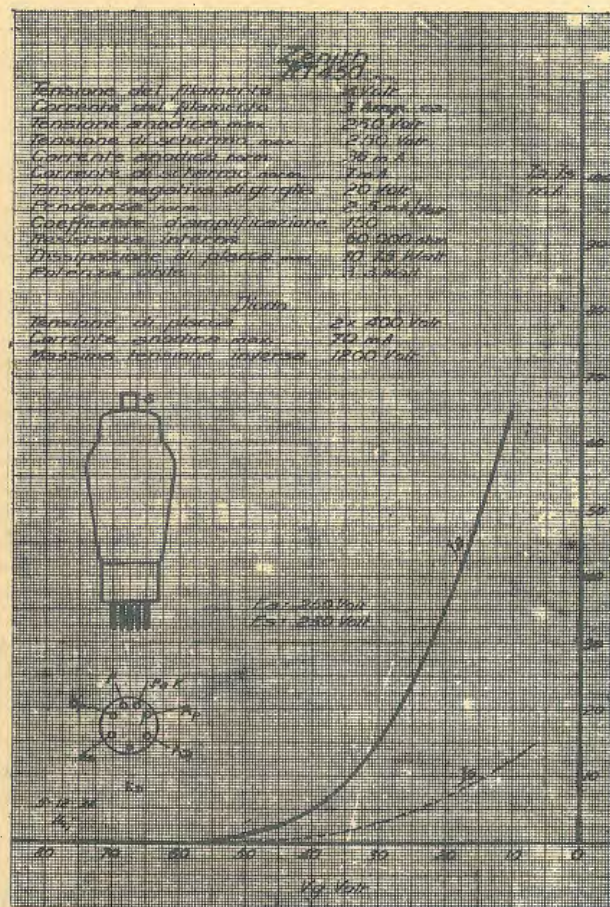 Zenith
Tensione del filamento 4 Volt
Corrente del filamento 3 Amp. ca.
Tensione anodica max. 250 Volt
Tensione di schermo max. 250 Volt
Corrente anodica norm. 36 mA
Corrente di schermo norm. 7 mA
Tensione negativa di griglia 20 Volt
Pendenza norm. 2.5 mA/Volt
Coefficente d'amplificazione 150
Resistenza interna 60 000 ohm
Dissipazione di placca max
Potenza utile Watt
Ia Is
mA
Diodo
Tensione di placca 2 x 400 Volt
Corrente anodica max. 70 mA
Massima tensione inversa 1200 Volt
G
100
90
80
70
60
50
40
30
20
10
Ia
Ea = 250 Volt
Es = 250 Volt
Is
80 70 60 50 40 30 20 10 0
Vg Volt